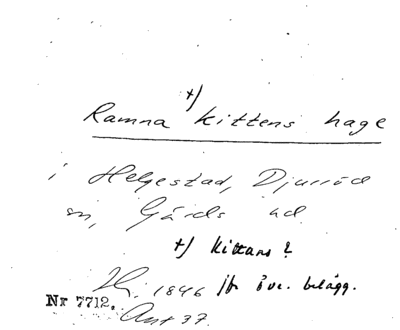 +)
Ramna Kittens hage
i Helgestad, Djurröd
sn, Gärds hd
+) Kittans?
1846 jfr övr. belägg.
Nr 7712.
Akt 37.